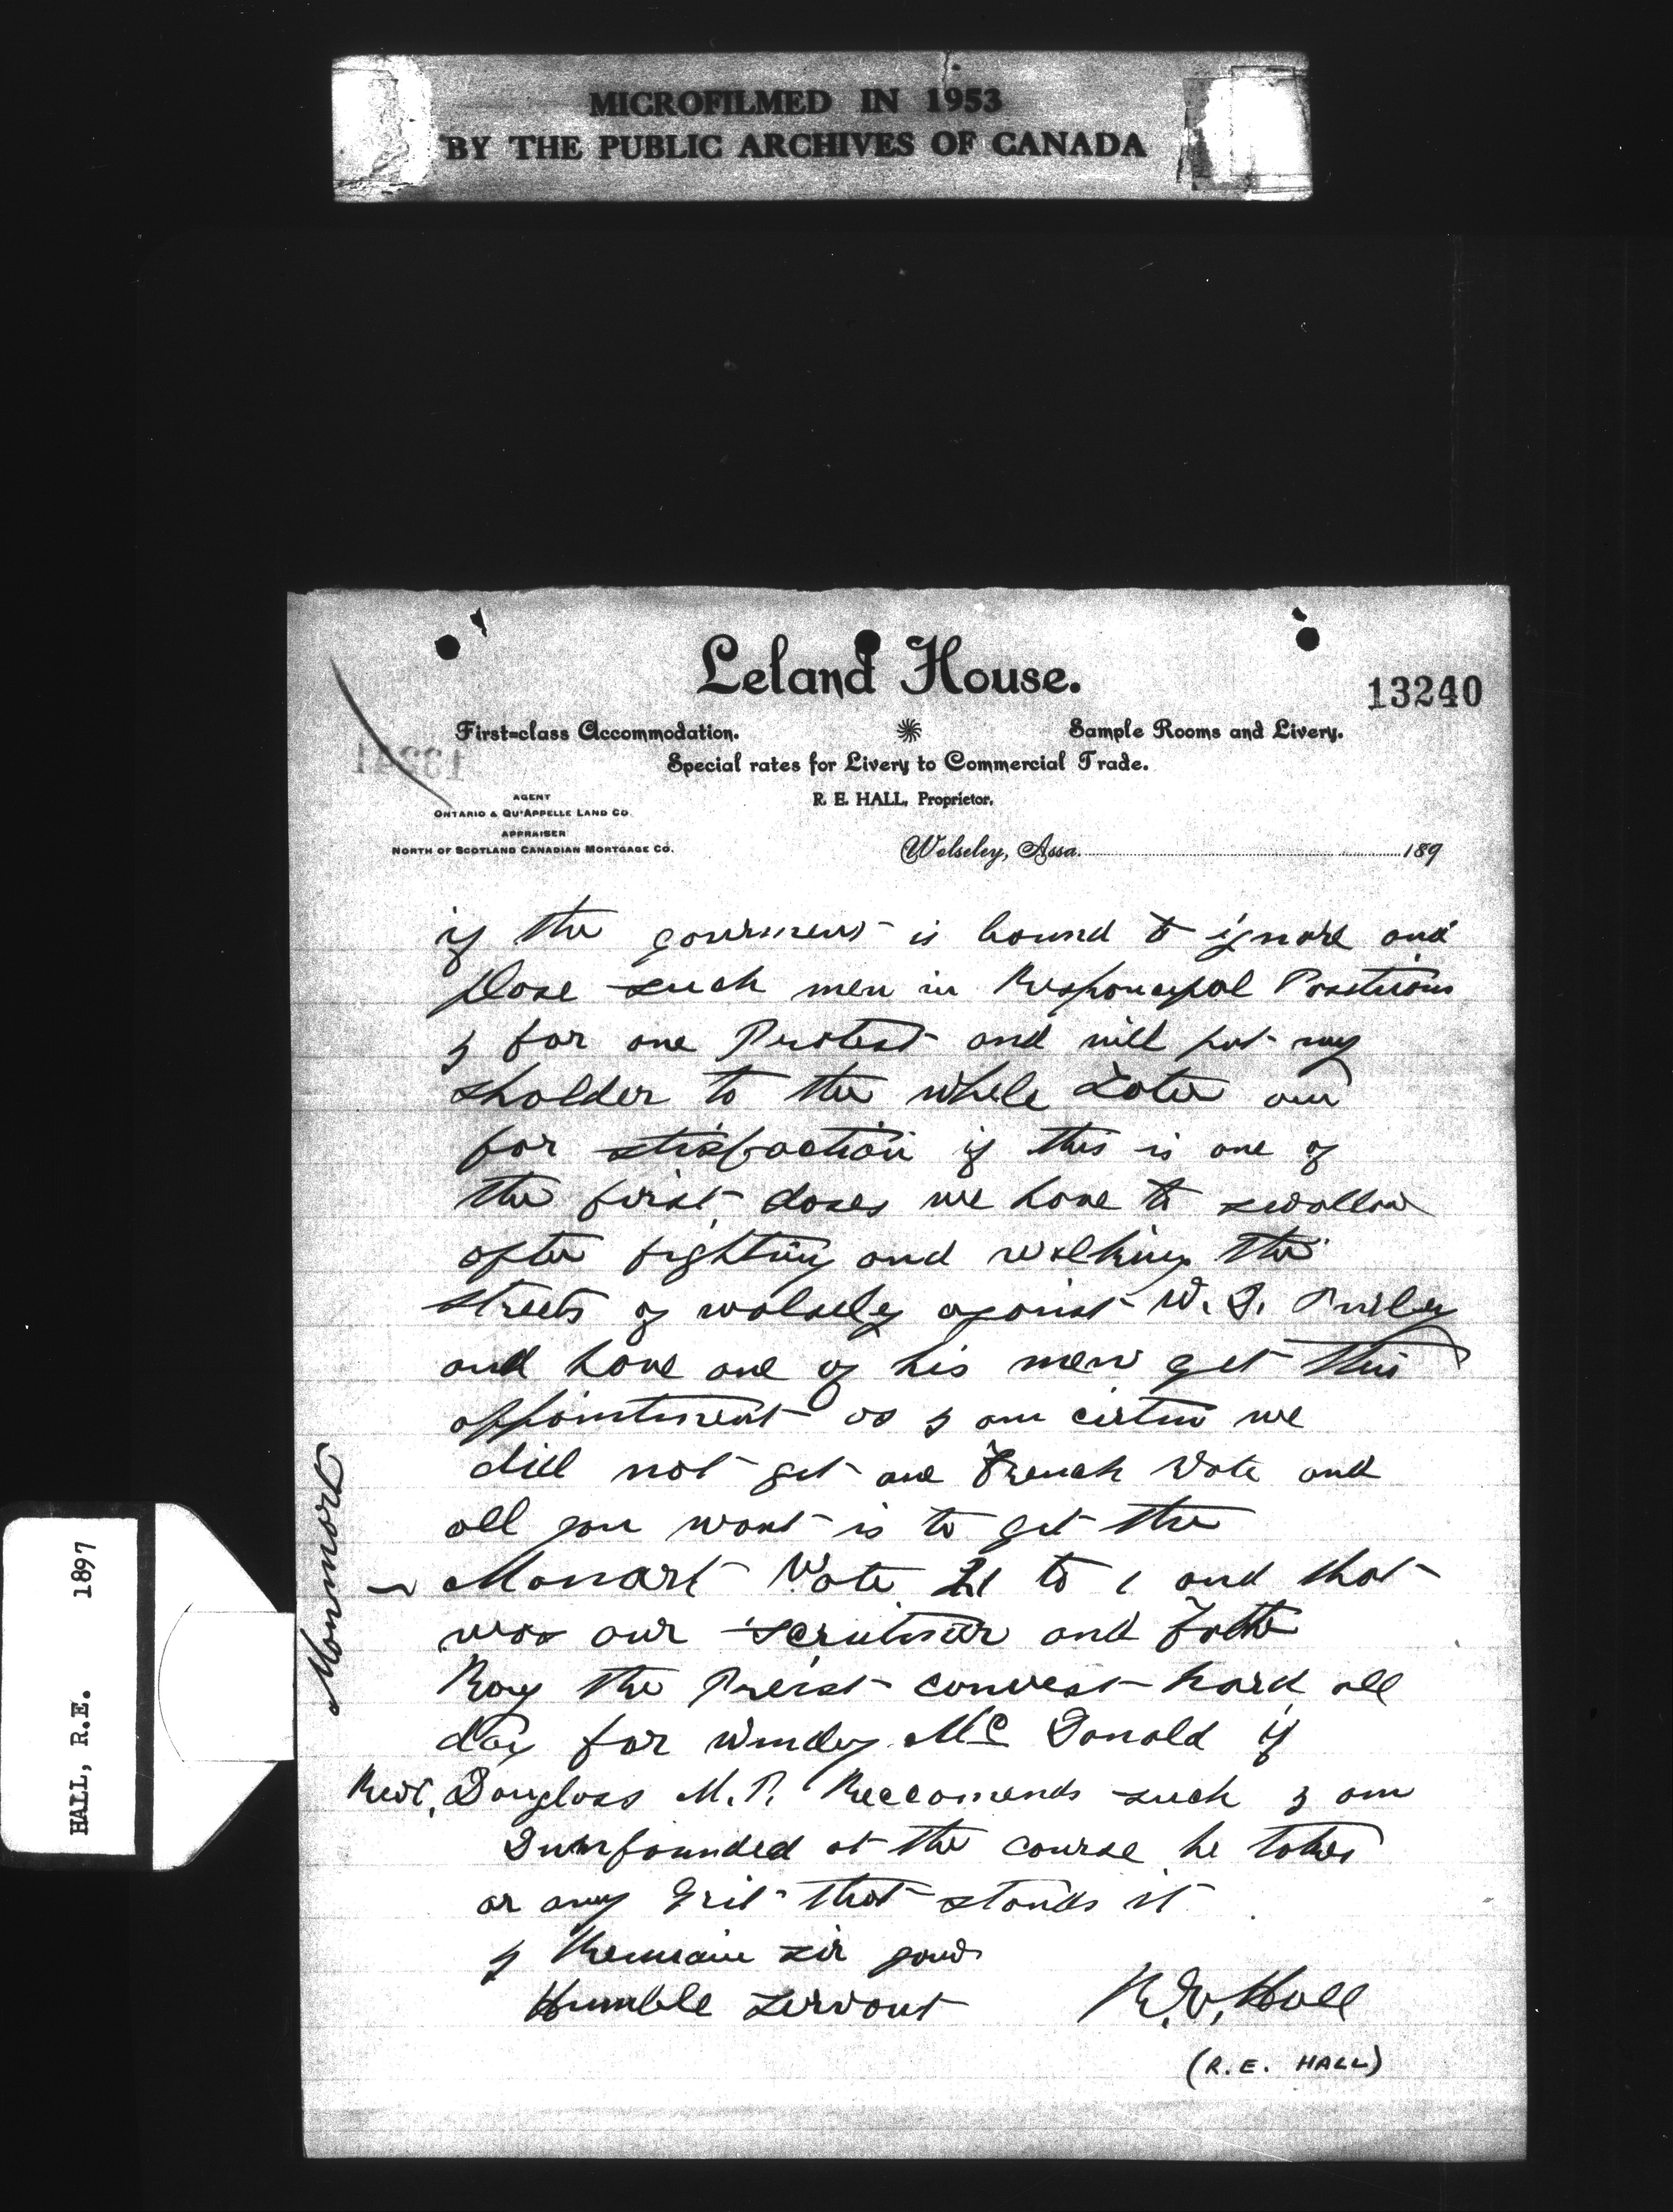 MICROFILMED IN 1953
BY THE PUBLIC ARCHIVES OF CANADA
Leland House.
13240
First-class Accommodation.
Sample Rooms and Livery.
Special rates for Livery to Commercial Trade.
R. E. HALL, Proprietor.
AGENT
ONTARIO & QU'APPELLE LAND CO.
APPRAISER
NORTH OF SCOTLAND CANADIAN MORTGAGE CO.
Wolseley, Assa. 189
if the government is bound to ignore and
Plase such men in Positions
I for one Protest and will put my
sholder to the whele
for stisfaction if this is one of
the first doses we have to swallow
after fighting and walking the
streets of wolsely against W. 
and have one of his men get this
appointment as I am certin we
did not get one French Vote and
all you want is to get the
Monart Vote 21 to 1 and that
was our scrutinar and Father
Roy the Preist convest hard all
day for windey Mc Donald if
Revr. Douglass M.P. Reccomends such I am
Dumfounded at the course he takes
or any Grit that stands it
I Remain sir your
Humble Servant R.E. Hall
(R.E. HALL)
Monmort
HALL, R.E. 1897